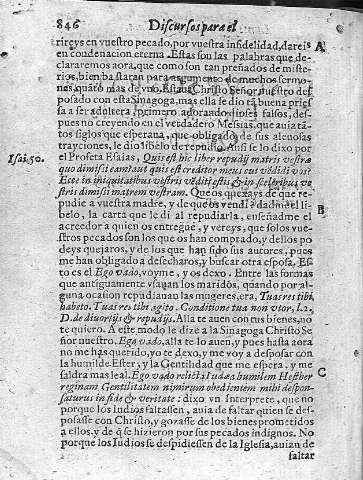 846 Discursos para el
rireys en vuestro pecado, por vuestra infidelidad, dareis
en condenacion eterna. Estas son las palabras que de-
clararemos aora, que como son tan preñados de miste-
rios, bien bastaran para argumento de muchos sermo-
nes, quãto mas de vno. Estaua Christo Señor nuestro des
posado con esta Sinagoga, mas ella se dio tã buena pries
sa a ser adultera, primero adorando dioses falsos, des-
pues no creyendo en el verdadero Mesias, que auia tã-
tos siglos que esperaua, que obligado de sus aleuosas
trayciones, le dio libelo de repudio. Ansi le lo dixo por
el Profeta Esaias, Quis est hic liber repudij matris vestræ
quo dimisi eam? aut quis est creditor meus cui vẽdidi vos?
Ecce in iniquitatibus vestris vẽditi estis, & in sceleribus ve
stris dimisi matrem vestram. Que os quexays de que re-
pudie a vuestra madre, y de que os vendi? dadme el li-
belo, la carta que le di al repudiarla, enseñadme el
acreedor a quien os entreguè, y vereys, que solos vue-
stros pecados son los que os han comprado, y dellos po
deys quexaros, y de los que han sido sus autores, pues
me han obligado a desecharos, y buscar otra esposa. Es-
to es el Ego vado, voyme, y os dexo. Entre las formas
que antiguamente vsauan los maridos, quando por al-
guna ocasion repudiauan las mugeres, era, Tuas res tibi
habeto. Tuas res tibi agito. Conditione tua non vtor, l. 2,
D. de diuortijs & repudijs. Alla te auen con tus bienes, no
te quiero. A este modo le dize a la Sinagoga Christo Se
ñor nuestro. Ego vado, alla te lo auen, y pues hasta aora
no me has querido, yo te dexo, y me voy a desposar con
la humilde Ester, y la Gentilidad que me espera, y me
saldra mas leal. Ego vado relicta Iudæa humilem Hesther
reginam Gentilitatem nimirum obedientem mihi despon-
saturus in fide & veritate: dixo vn Interprete, que no
porque los Iudios faltassen, auia de faltar quien se des-
posasse con Christo, y gozasse de los bienes prometidos
a ellos, y de q̃ se hizieron por sus pecados indignos. No
porque los Iudios se despidiessen de la Iglesia, auian de
faltar
Isai. 50.
A
B
C